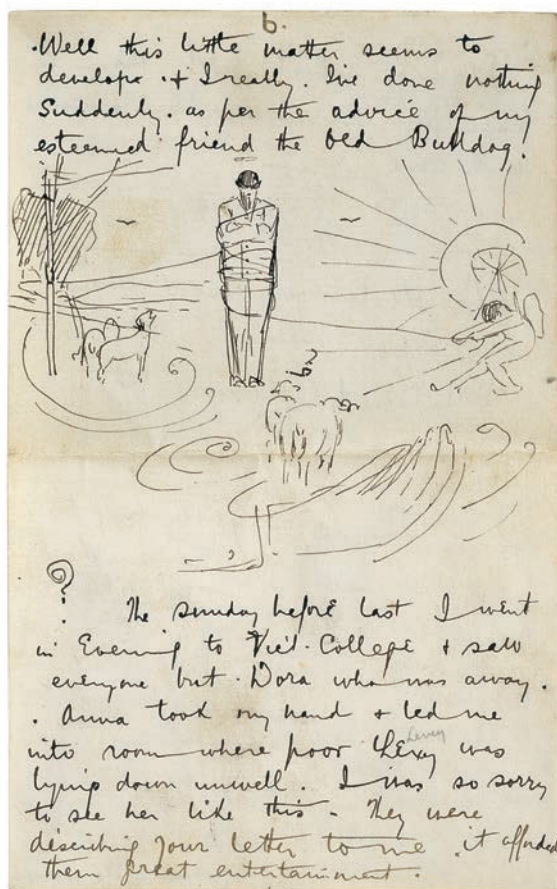 6.
.Well this little matter seems to
develope . + I really. I've done nothing
Suddenly. as per the advice of my
esteemed friend the Old Bulldog.
?
The sunday before last I went
in Evening to Vict. College + saw
everyone but Dora who was away.
. Anna took my hand + led me
into room where poor Lexy was
lying down unwell. I was so sorry
to see her like this - They were
describing your letter to me . it afforded
them great entertainment.